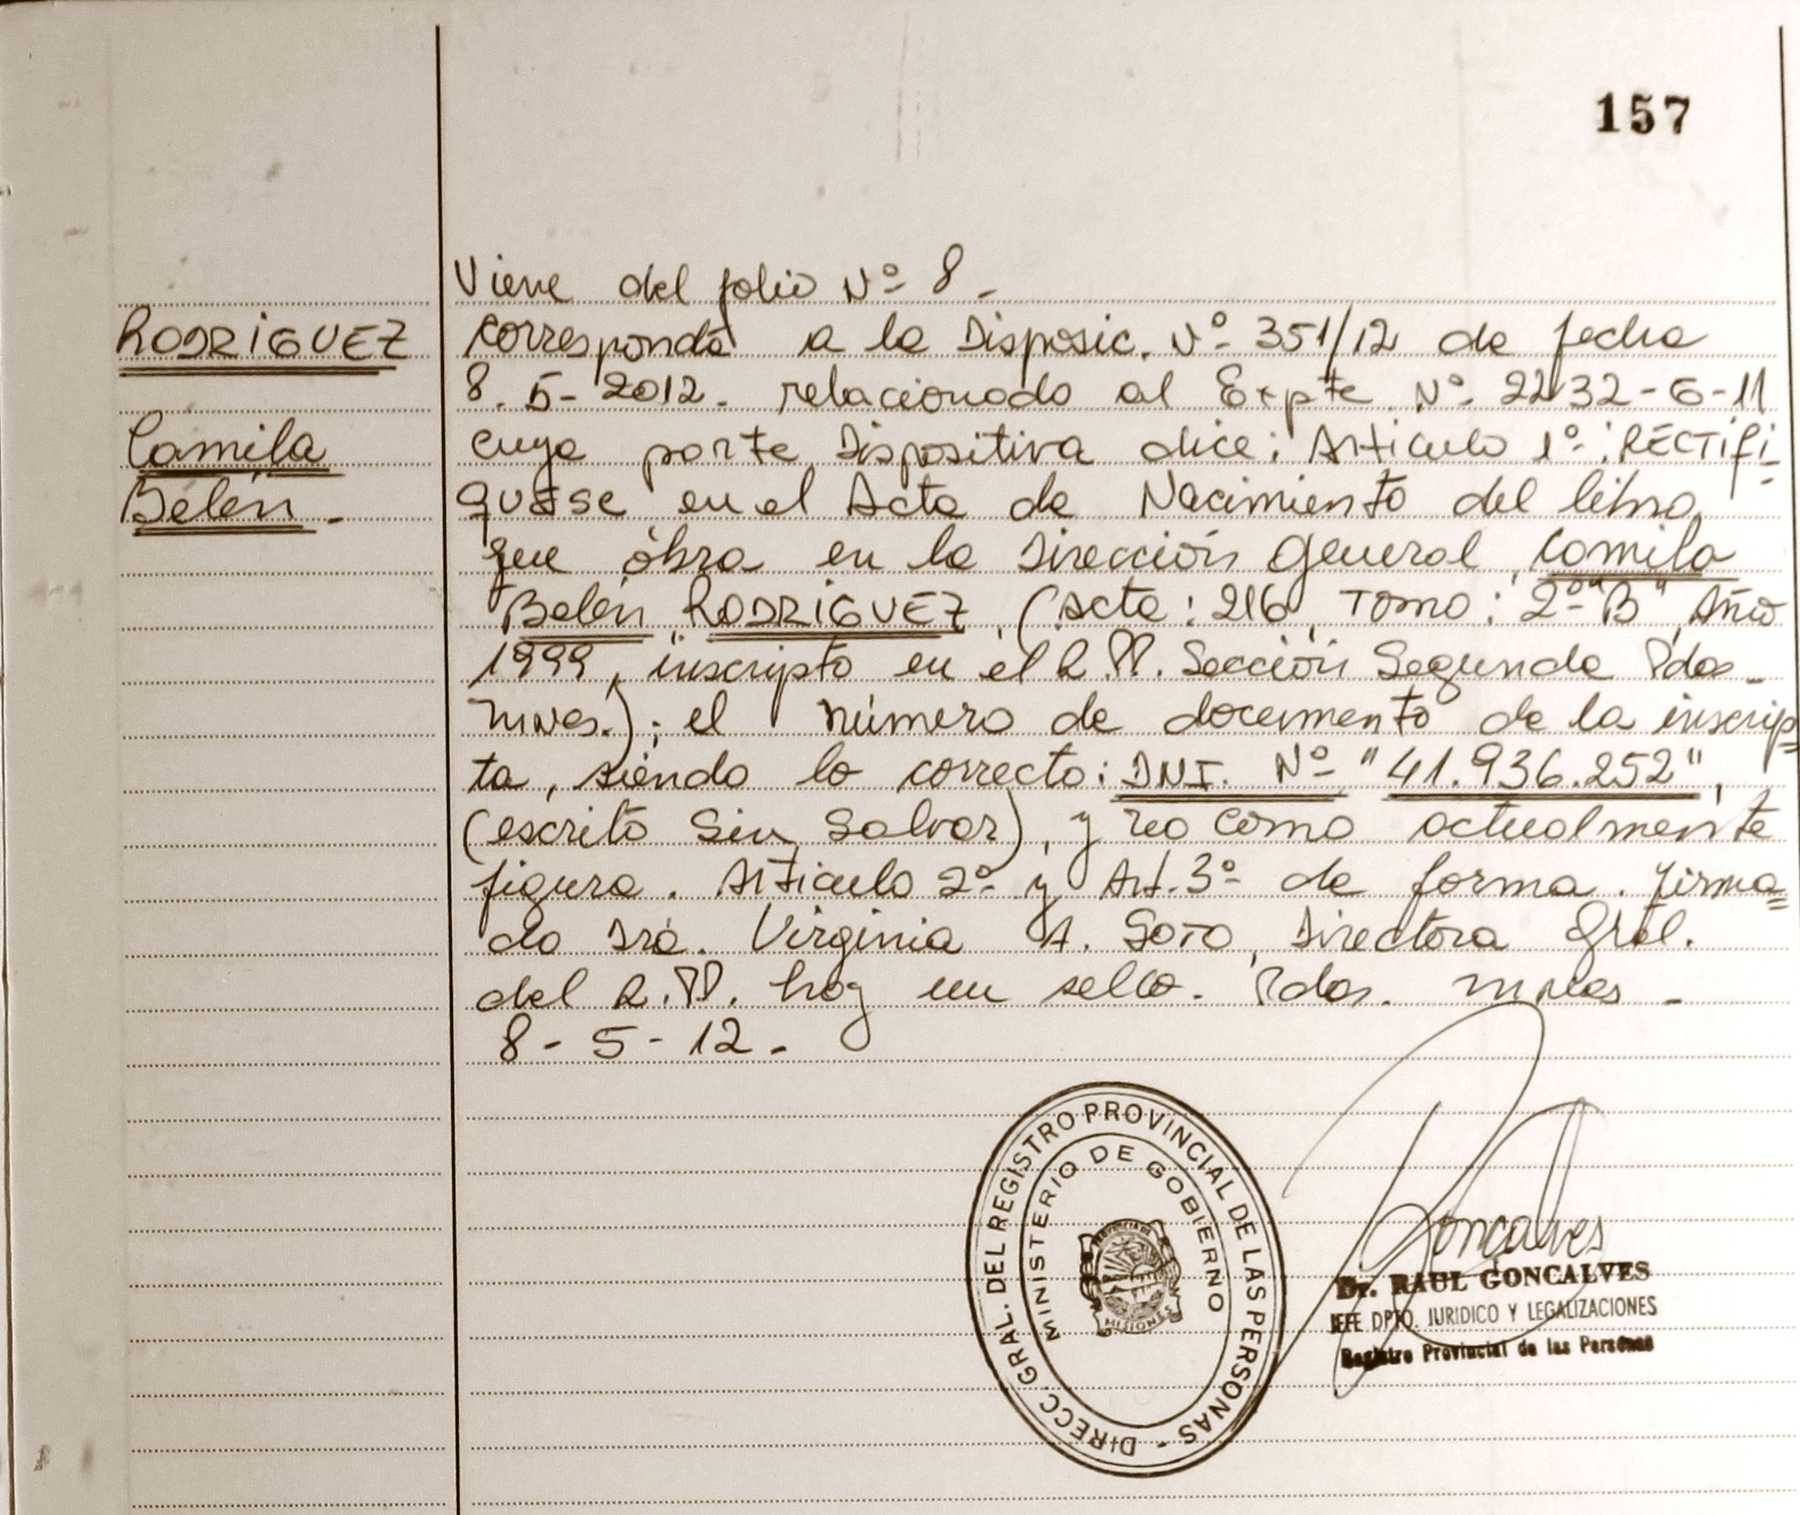 157
Viene del folio Nº 8 -
RODRIGUEZ
Corresponde a la Disposic. Nº 351/12 de fecha
8-5-2012. relacionado al Expte Nº 2232-G-11
Camila
cuya parte Dispositiva dice: Articulo 1º: RECTIFI-
Belén -
QUESE en el Acta de Nacimiento del libro
que obra en la Dirección General, Camila
Belén RODRIGUEZ, (Acta: 216, Tomo: 2º "B", Año
1999, inscripto en el R.PP. Sección Segunda Pdas-
Mnes.); el número de documento de la inscrip=
ta, siendo lo correcto: DNI. Nº "41.936.252",
(escrito Sin Salvar), y no como actualmente
figura. Articulo 2º y Art. 3º de forma. Firma=
do Dra. Virginia A. SOTO, Directora Gral.
del R.PP. hay un sello. Pdas. Mnes -
8-5-12.
DIRECC. GRAL. DEL REGISTRO PROVINCIAL DE LAS PERSONAS -
MINISTERIO DE GOBIERNO
MISIONES
Goncalves
Dr. RAUL GONCALVES
JEFE DPTO. JURIDICO Y LEGALIZACIONES
Registro Provincial de las Personas